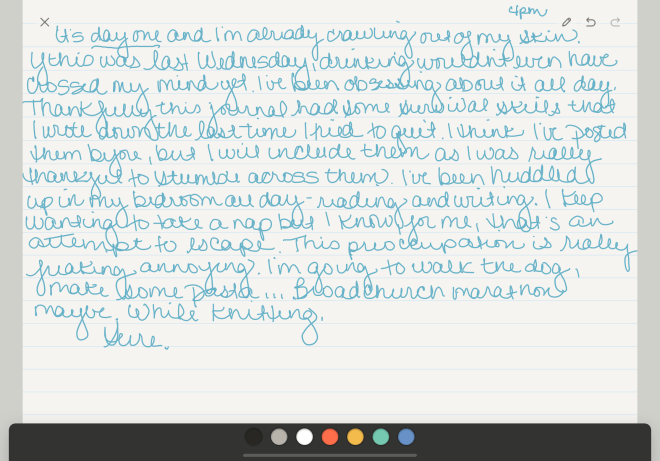 4pm
It's day one and I'm already crawling out of my skin.
If this was last Wednesday, drinking wouldn't even have
crossed my mind yet. I've been obsessing about it all day.
Thankfully this journal had some survival skills that
I wrote down the last time I tried to quit. I think I've posted
them before, but I will include them as I was really
thankful to stumble across them. I've been huddled
up in my bedroom all day - reading and writing. I keep
wanting to take a nap but I know, for me, that's an
attempt to escape. This preoccupation is really
freaking annoying. I'm going to walk the dog,
make some pasta... Broadchurch marathon
maybe. While knitting.